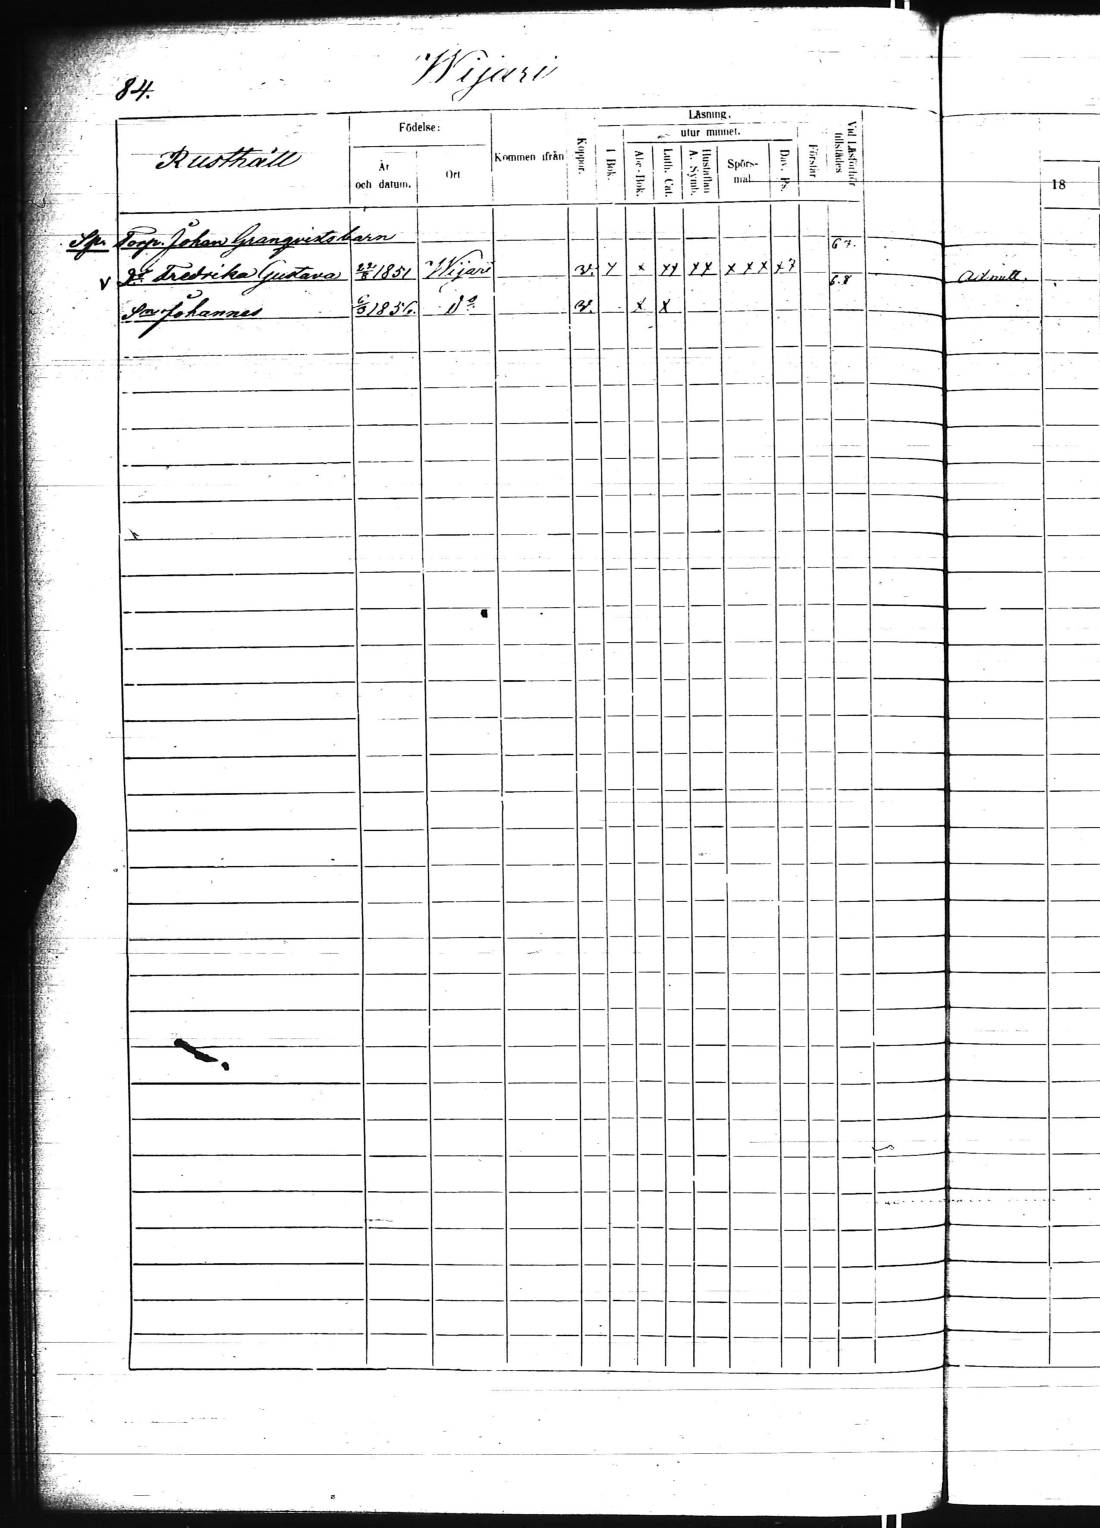 84.
Wijari
Rusthåll
Födelse:
År
och datum.
Ort
Kommen ifrån
Koppor.
Läsning.
utur minnet.
I Bok.
Abc-Bok.
Luth. Cat.
Hustaflan
A. Symb.
Spörs-
mal.
Dav. Ps.
Förstår
Vid Läsförhör
tillstädes
18
Sp. Torp. Johan Granqvists barn
67.
v Dr Fredrika Gustava 22/8 1851 Wijari v. x x xx xx x x x x 7
68
Admitt.
Sn Johannes 1856. Do v. x x